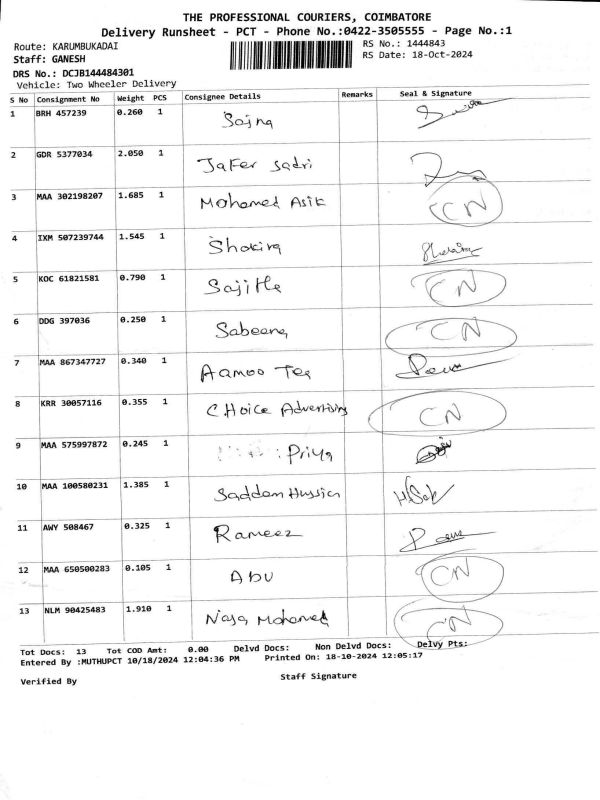 THE PROFESSIONAL COURIERS, COIMBATORE
Delivery Runsheet - PCT - Phone No.:0422-3505555 - Page No.:1
Route: KARUMBUKADAI RS No.: 1444843
Staff: GANESH RS Date: 18-Oct-2024
DRS No.: DCJB144484301
Vehicle: Two Wheeler Delivery
S No Consignment No Weight PCS Consignee Details Remarks Seal & Signature
1 BRH 457239 0.260 1 Sajna
2 GDR 5377034 2.050 1 Jafer Sadri
3 MAA 302198207 1.685 1 Mohamed Asik CN
4 IXM 507239744 1.545 1 Shakira
5 KOC 61821581 0.790 1 Sajitha CN
6 DDG 397036 0.250 1 Sabeena CN
7 MAA 867347727 0.340 1 Aamoo Tea
8 KRR 30057116 0.355 1 Choice Advertising CN
9 MAA 575997872 0.245 1 Priya
10 MAA 100580231 1.385 1 Saddam Hussien
11 AWY 508467 0.325 1 Rameez
12 MAA 650500283 0.105 1 Abu CN
13 NLM 90425483 1.910 1 Naja Mohamed CN
Tot Docs: 13 Tot COD Amt: 0.00 Delvd Docs: Non Delvd Docs: Delvy Pts:
Entered By :MUTHUPCT 10/18/2024 12:04:36 PM Printed On: 18-10-2024 12:05:17
Verified By Staff Signature